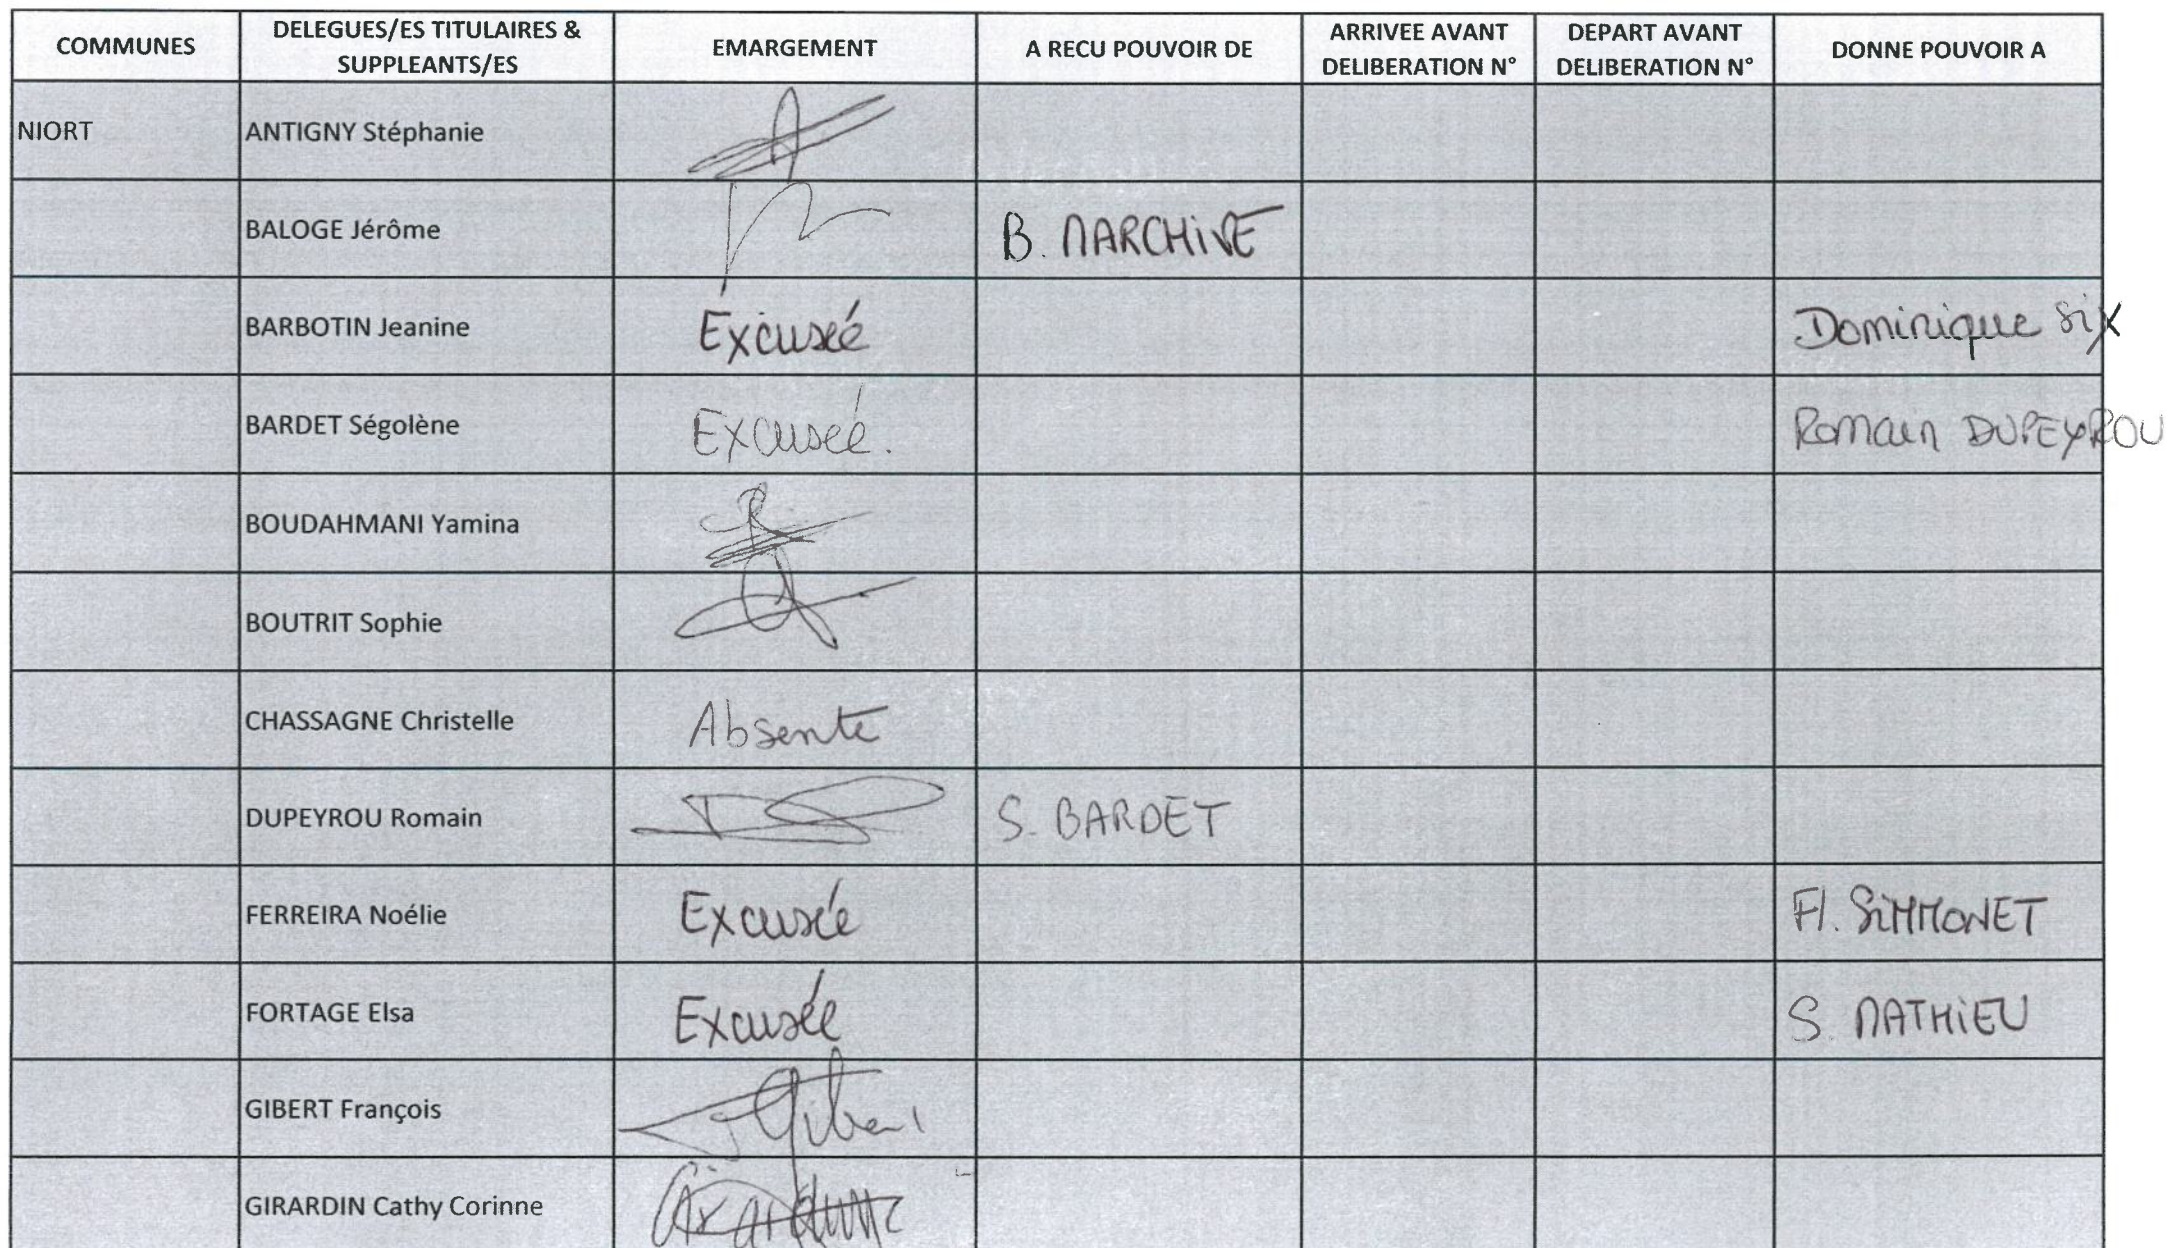 COMMUNES DELEGUES/ES TITULAIRES & SUPPLEANTS/ES EMARGEMENT A RECU POUVOIR DE ARRIVEE AVANT DELIBERATION N° DEPART AVANT DELIBERATION N° DONNE POUVOIR A
NIORT ANTIGNY Stéphanie
BALOGE Jérôme B. MARCHIVE
BARBOTIN Jeanine Excusée Dominique Six
BARDET Ségolène Excusée. Romain DUPEYROU
BOUDAHMANI Yamina
BOUTRIT Sophie
CHASSAGNE Christelle Absente
DUPEYROU Romain S. BARDET
FERREIRA Noélie Excusée Fl. SIMMONET
FORTAGE Elsa Excusée S. MATHIEU
GIBERT François
GIRARDIN Cathy Corinne